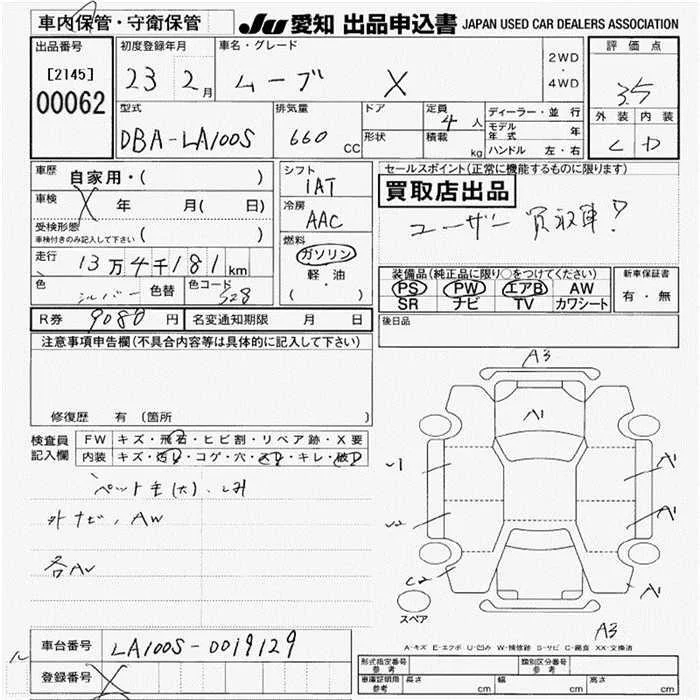 車内保管・守衛保管
JU 愛知 出品申込書 JAPAN USED CAR DEALERS ASSOCIATION
出品番号
[2145]
00062
初度登録年月
23 2月
車名・グレード
ムーブ X
2WD
・
4WD
評価点
3.5
外装 内装
C D
型式
DBA-LA100S
排気量
660 CC
ドア
形状
定員
4人
積載
kg
ディーラー・並行
モデル年式 年
ハンドル 左・右
車歴 自家用・( )
車検 X 年 月( 日)
受検形態
車検付きのみ記入して下さい ( )
走行 13万4千181km
色 シルバー 色替 色コード S28
シフト
IAT
冷房
AAC
燃料
ガソリン
軽・油
( )
セールスポイント(正常に機能するものに限ります)
買取店出品
ユーザー買取車!
装備品(純正品に限り○をつけてください)
PS PW エアB AW
SR ナビ TV カワシート
新車保証書
有・無
R券 9080 円 名変通知期限 月 日
後日品
注意事項申告欄(不具合内容等は具体的に記入して下さい)
修復歴 有(箇所 )
検査員
記入欄
FW キズ・飛石・ヒビ割・リペア跡・X要
内装 キズ・汚レ・コゲ・穴・スレ・キレ・破レ
ペット毛(大)、しみ
外ナビ、AW
各AU
A3
A1
A1
A1
A1
C2
スペア
A3
A-キズ E-エクボ U-凹み W-補修跡 S-サビ C-腐食 XX-交換済
車台番号 LA100S-0019129
登録番号 X
形式指定番号
参考
類別区分番号
参考
車庫証明用
参考
長さ cm 幅 cm 高さ cm